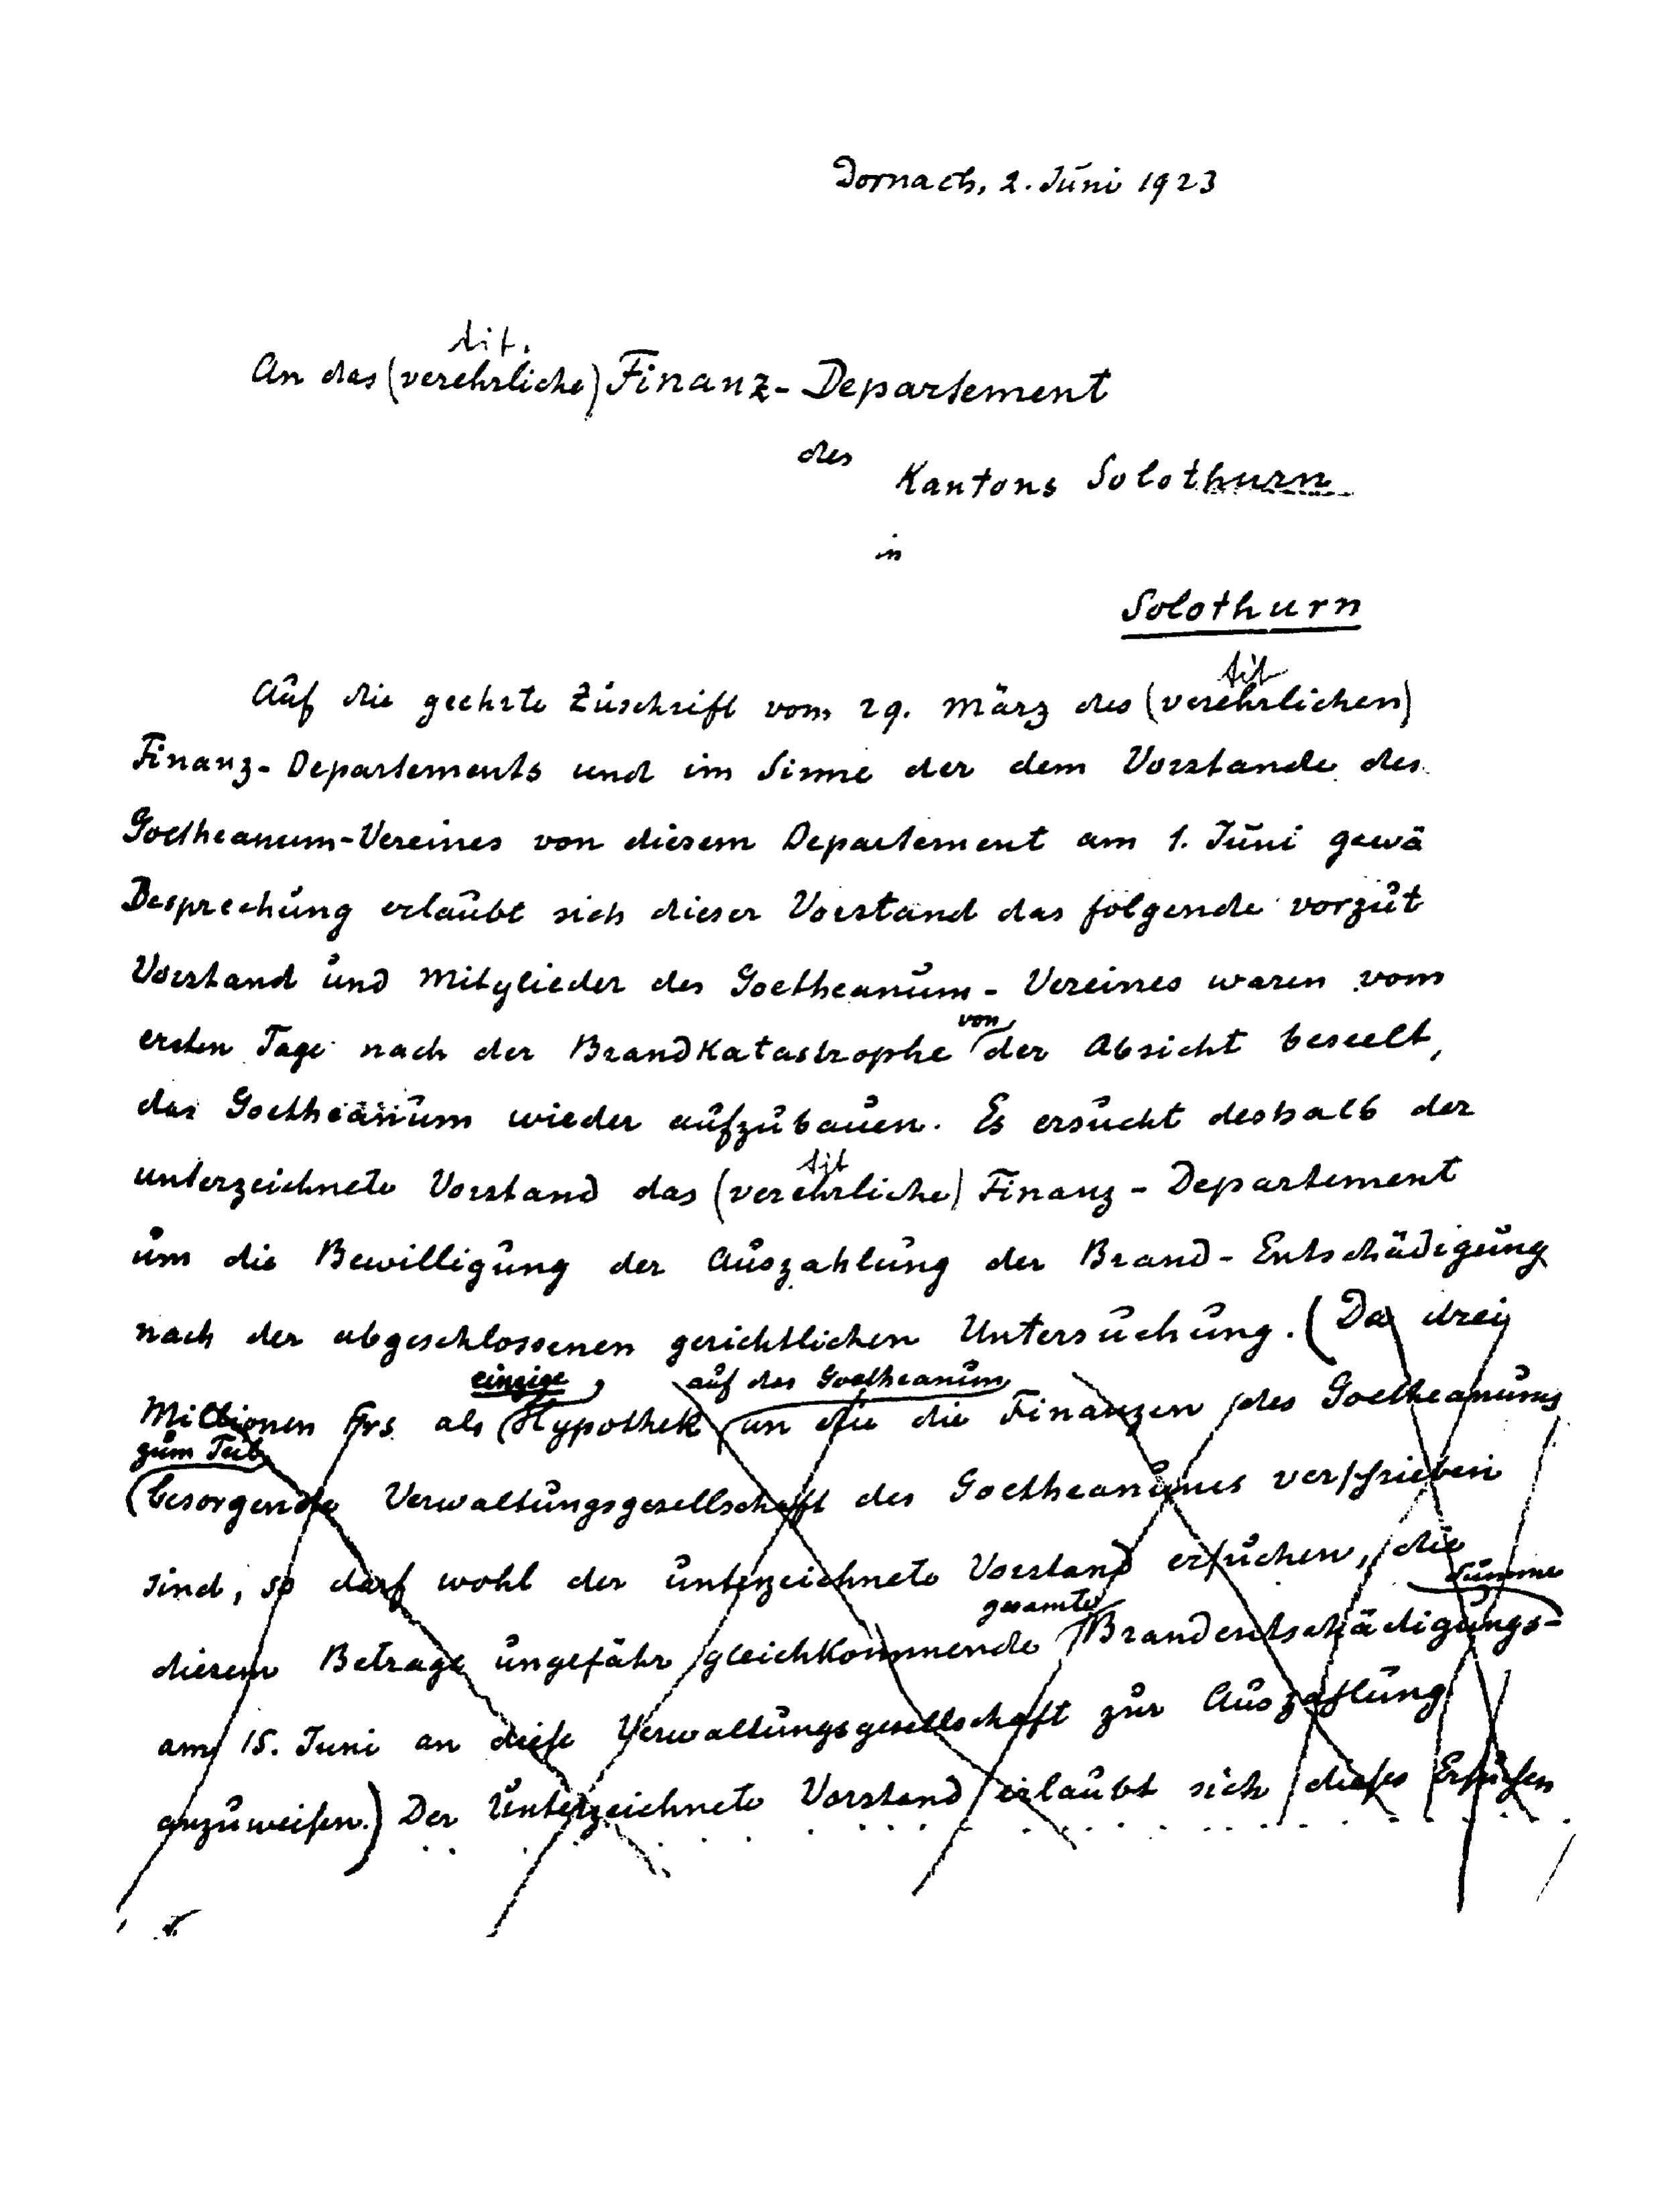 Dornach, 2. Juni 1923
tit.
An das (verehrliche) Finanz-Departement
des
Kantons Solothurn
in
Solothurn
tit
Auf die geehrte Zuschrift vom 29. März des (verehrlichen)
Finanz-Departements und im Sinne der dem Vorstande des
Goetheanum-Vereines von diesem Departement am 1. Juni gewä
Besprechung erlaubt sich dieser Vorstand das folgende vorzut
Vorstand und Mitglieder des Goetheanum-Vereines waren vom
von
ersten Tage nach der Brandkatastrophe der Absicht beseelt,
das Goetheanum wieder aufzubauen. Es ersucht deshalb der
tit
unterzeichnete Vorstand das (verehrliche) Finanz-Departement
um die Bewilligung der Auszahlung der Brand-Entschädigung
nach der abgeschlossenen gerichtlichen Untersuchung. (Da drei
einzige auf das Goetheanum
Millionen Frs als Hypothek an die die Finanzen des Goetheanums
zum Teil
besorgende Verwaltungsgesellschaft des Goetheanums verschrieben
sind, so darf wohl der unterzeichnete Vorstand ersuchen, die
gesamte summe
diesem Betrage ungefähr gleichkommende Brandentschädigungs-
am 15. Juni an diese Verwaltungsgesellschaft zur Auszahlung
anzuweisen.) Der Unterzeichnete Vorstand erlaubt sich dieses Ersuchen